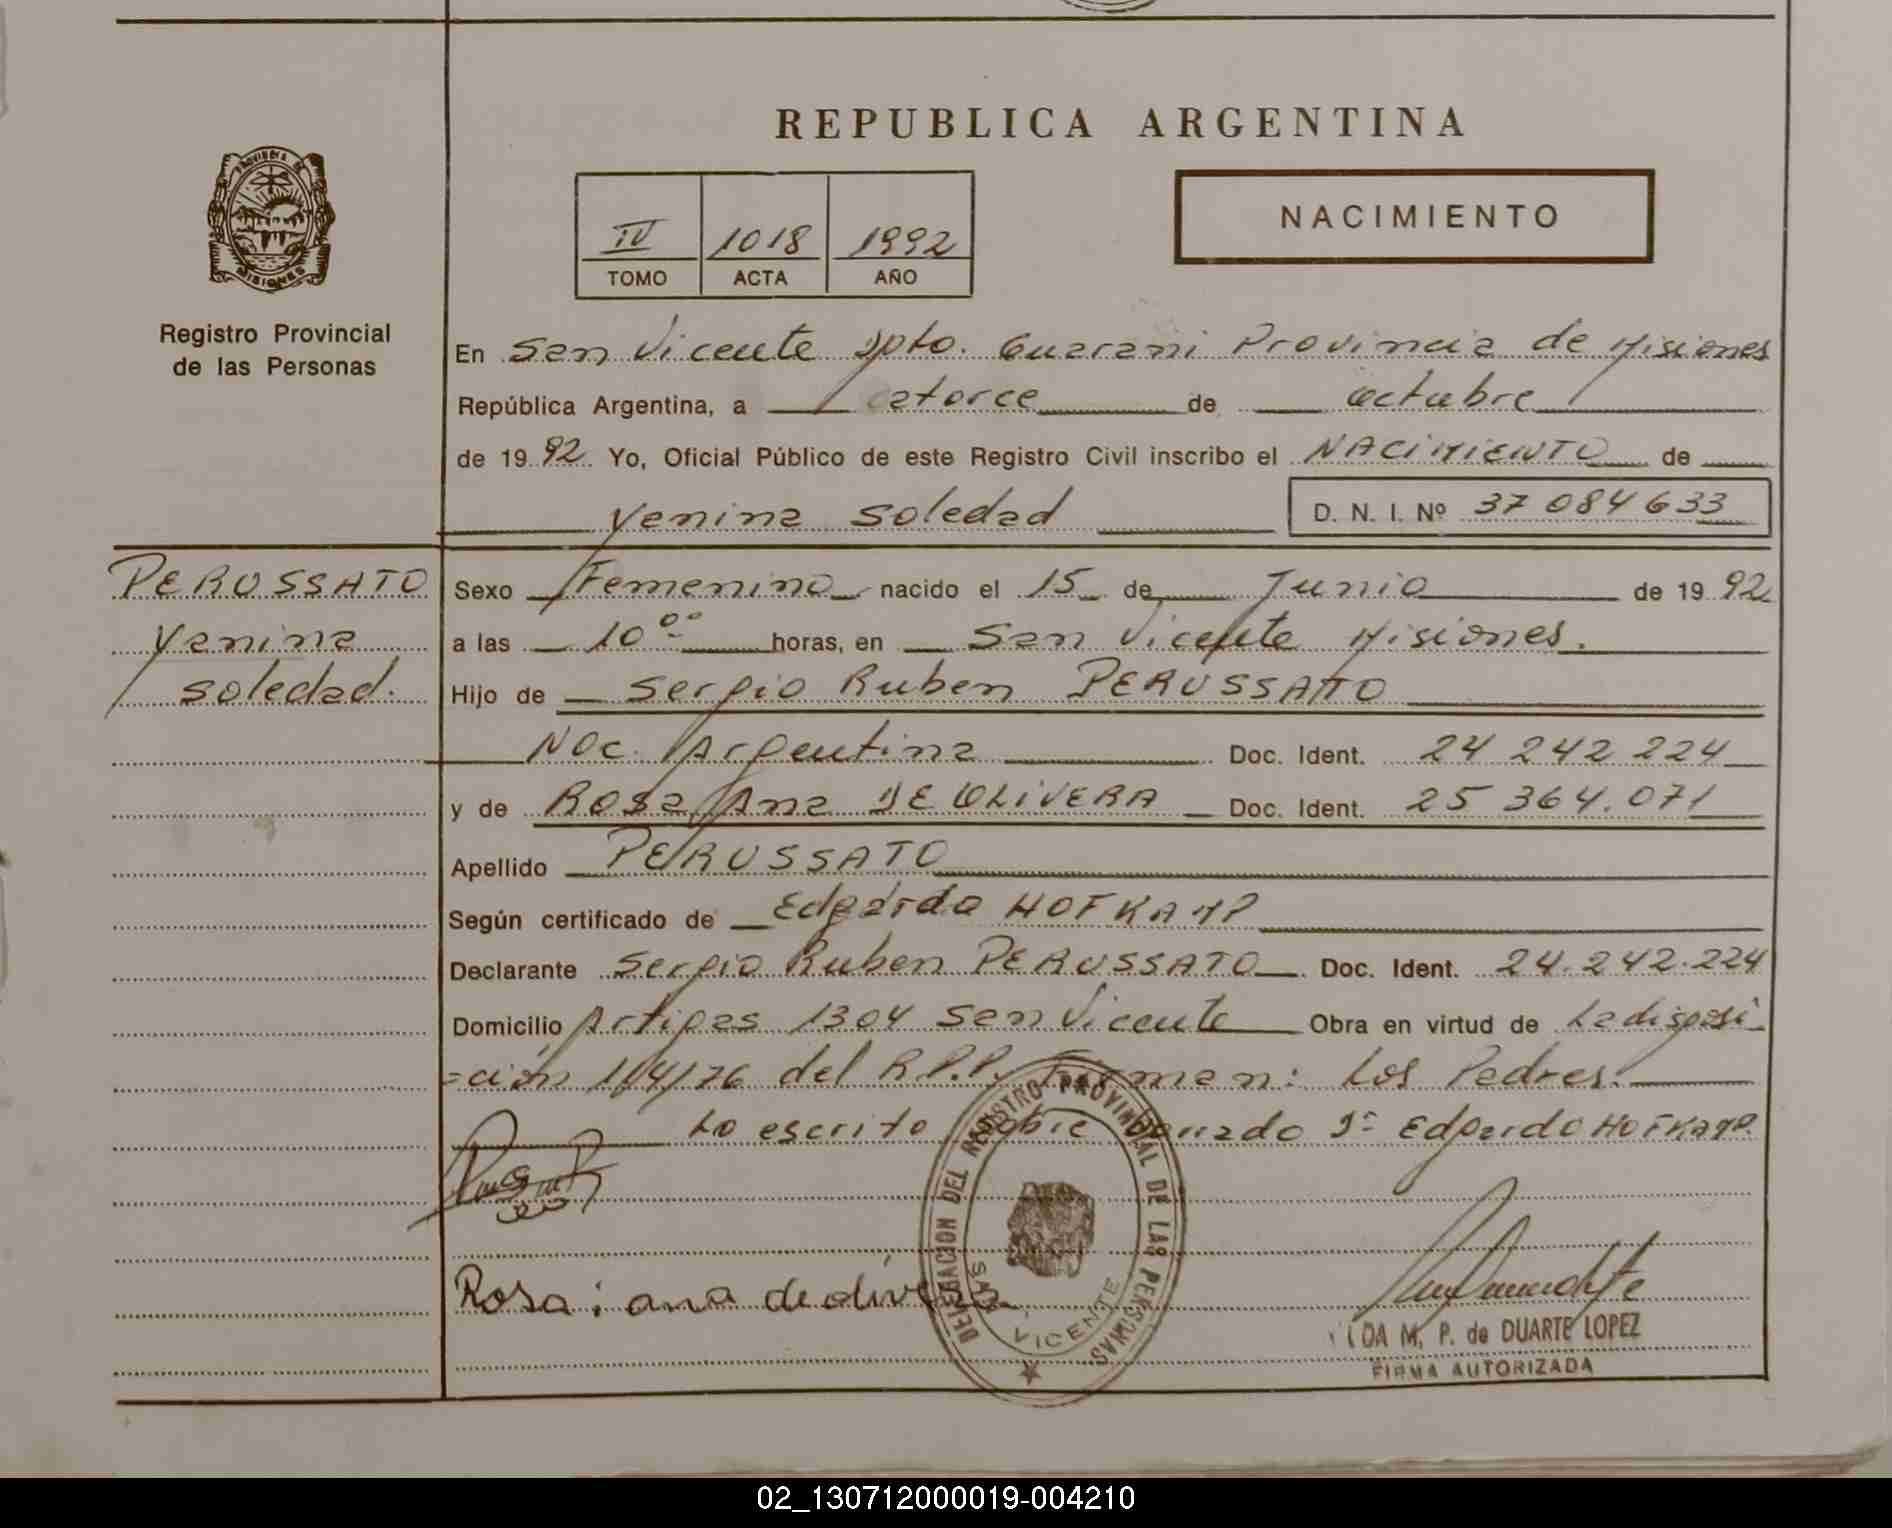 REPUBLICA ARGENTINA
PROVINCIA DE
MISIONES
Registro Provincial
de las Personas
IV 1018 1992
TOMO ACTA AÑO
NACIMIENTO
En San Vicente Dpto. Guarani Provincia de Misiones
República Argentina, a catorce de octubre
de 1992 Yo, Oficial Público de este Registro Civil inscribo el NACIMIENTO de
Yanina Soledad
D. N. I. Nº 37 084 633
PERUSSATO
Yanina
Soledad.
Sexo Femenino nacido el 15 de Junio de 1992
a las 10 00 horas, en San Vicente Misiones.
Hijo de Sergio Ruben PERUSSATO
Nac. Argentina Doc. Ident. 24 242 224
y de Rosa Ana DE OLIVERA Doc. Ident. 25 364.071
Apellido PERUSSATO
Según certificado de Edgardo HOFKAMP
Declarante Sergio Ruben PERUSSATO Doc. Ident. 24.242.224
Domicilio Artigas 1304 San Vicente Obra en virtud de La disposi
=ción 1/4/76 del R.P.P. Firman: Los Padres.
Lo escrito sobre borrado Dr Edgardo HOFKAMP.
Rosa: ana de olivera
DELEGACION DEL REGISTRO PROVINCIAL DE LAS PERSONAS
SAN VICENTE
M. P. de DUARTE LOPEZ
FIRMA AUTORIZADA
02_130712000019-004210